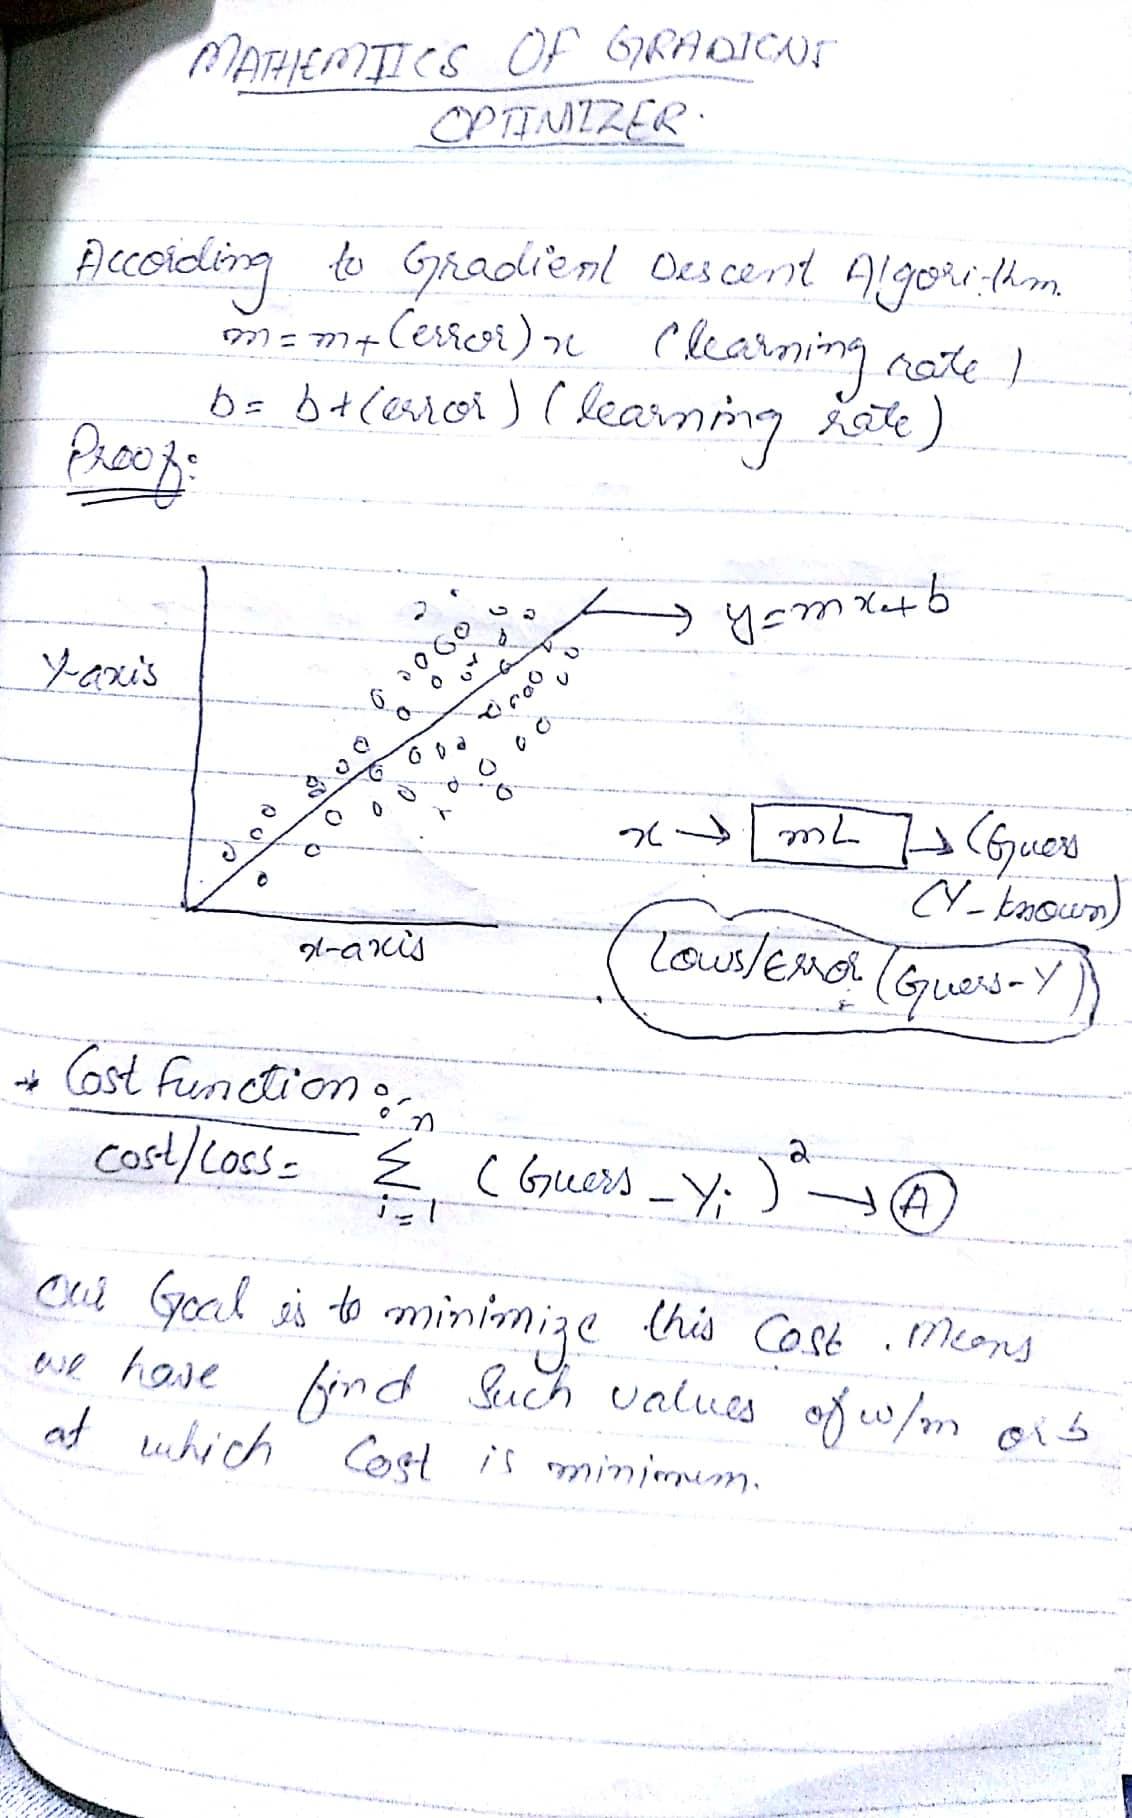 MATHEMTICS OF GRADIENT
OPTIMIZER.
According to Gradient Descent Algorithm.
m = m + (error) x (learning rate)
b = b + (error) (learning rate)
Proof:
y = mx + b
Y-axis
x → mL → (Guess
(Y - known)
x-axis
Lows/Error (Guess - Y)
* Cost Function :-
cost/Loss = n Σ i=1 (Guess - Yi)² → A
Our Goal is to minimize this Cost. Means
we have find Such values of w/m or b
at which Cost is minimum.